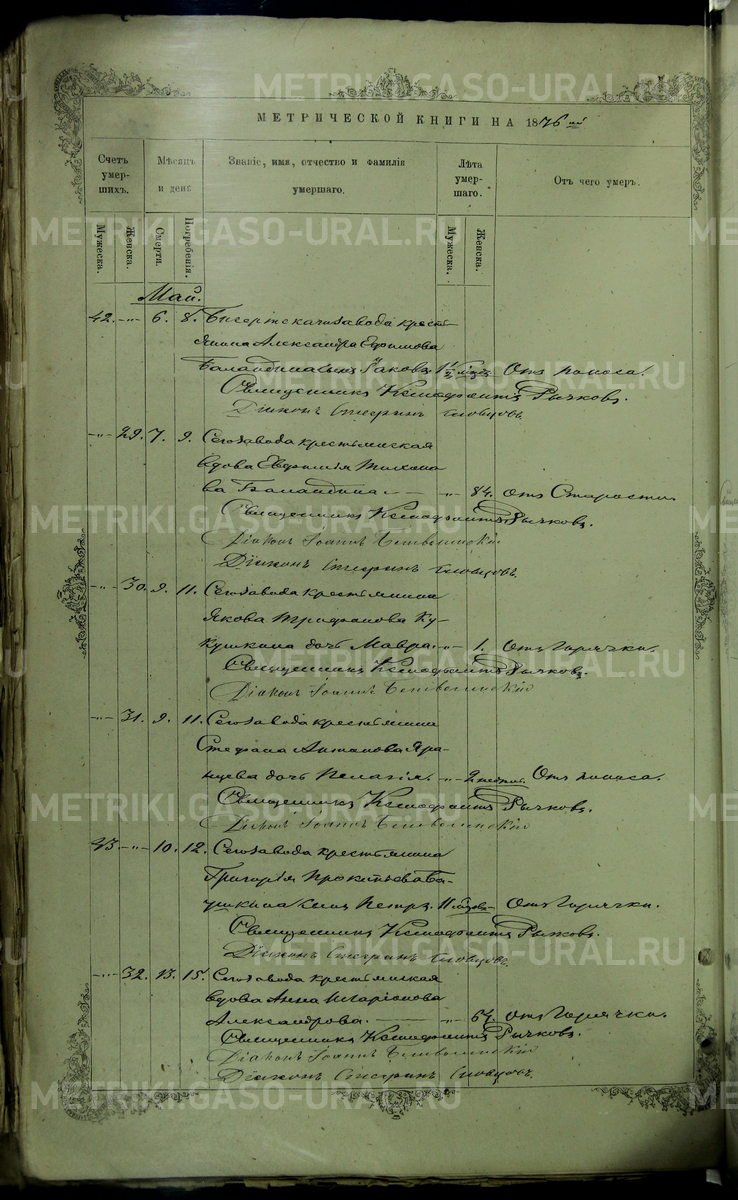 МЕТРИЧЕСКОЙ КНИГИ НА 1876 й
Счетъ умер-шихъ.
Мѣсяцъ и день
Званіе, имя, отчество и фамилія умершаго.
Лѣта умер-шаго.
Отъ чего умеръ.
Мужеска.
Женска.
Смерти.
Погребенія.
Мужеска.
Женска.
Май.
42. -"- 6. 8. Бисертскаго завода кресть-
янина Александра Евфимова
Баландина сынъ Іаковъ. Отъ поноса.
Священникъ Ксенофонтъ Рычковъ.
Діаконъ Словцовъ.
-"- 29. 7. 9. Сего завода крестьянская
вдова Евфимія Тихоно
ва Баландина. -"- 84. Отъ Старости.
Священникъ Ксенофонтъ Рычковъ.
Діаконъ Іоаннъ
Діаконъ Словцовъ.
-"- 30. 9. 11. Сего завода крестьянина
Якова Трифонова Ку-
кушкина дочь Мавра. -"- 1. Отъ Горячки.
Священникъ Ксенофонтъ Рычковъ.
Діаконъ Іоаннъ
-"- 31. 9. 11. Сего завода крестьянина
Стефана Антонова Яра-
нцева дочь Пелагія. -"- 2 недѣл. Отъ поноса.
Священникъ Ксенофонтъ Рычковъ.
Діаконъ Іоаннъ
43. -"- 10. 12. Сего завода крестьянина
Григорія Прокопьева Ба-
ушкина сынъ Петръ. 11 Отъ Горячки.
Священникъ Ксенофонтъ Рычковъ.
Діаконъ Словцовъ.
-"- 32. 13. 15. Сего завода крестьянская
вдова Анна Иларіонова
Александрова. -"- 67. Отъ Горячки.
Священникъ Ксенофонтъ Рычковъ.
Діаконъ Іоаннъ
Діаконъ Словцовъ.
METRIKI.GASO-URAL.RU